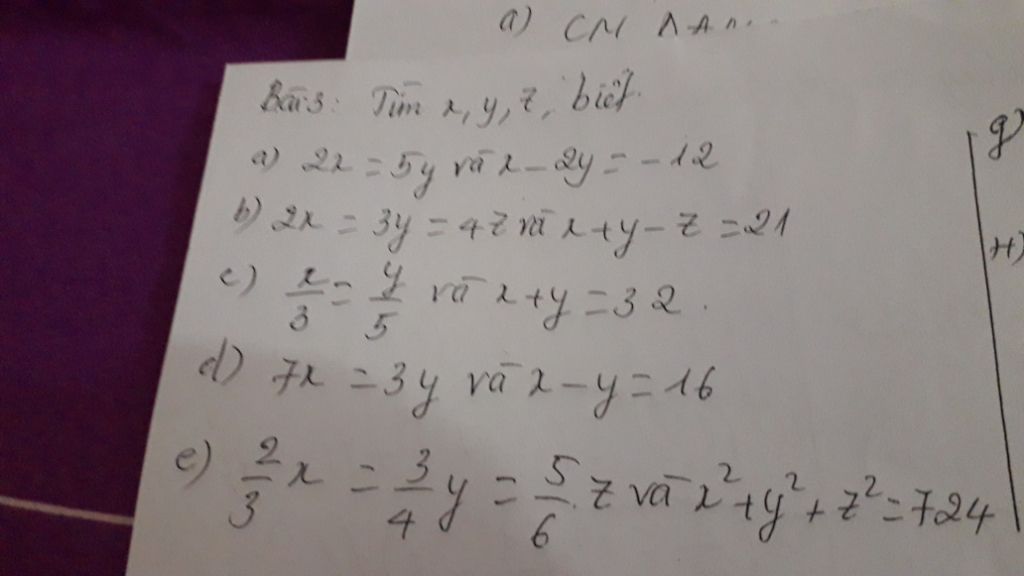 a) CM
Bài 3: Tìm x, y, z, biết.
a) 2x = 5y và x - 2y = -12
b) 2x = 3y = 4z và x + y - z = 21
c) x/3 = y/5 và x + y = 32.
d) 7x = 3y và x - y = 16
e) 2/3 x = 3/4 y = 5/6 . z và x² + y² + z² = 724
g)
H)